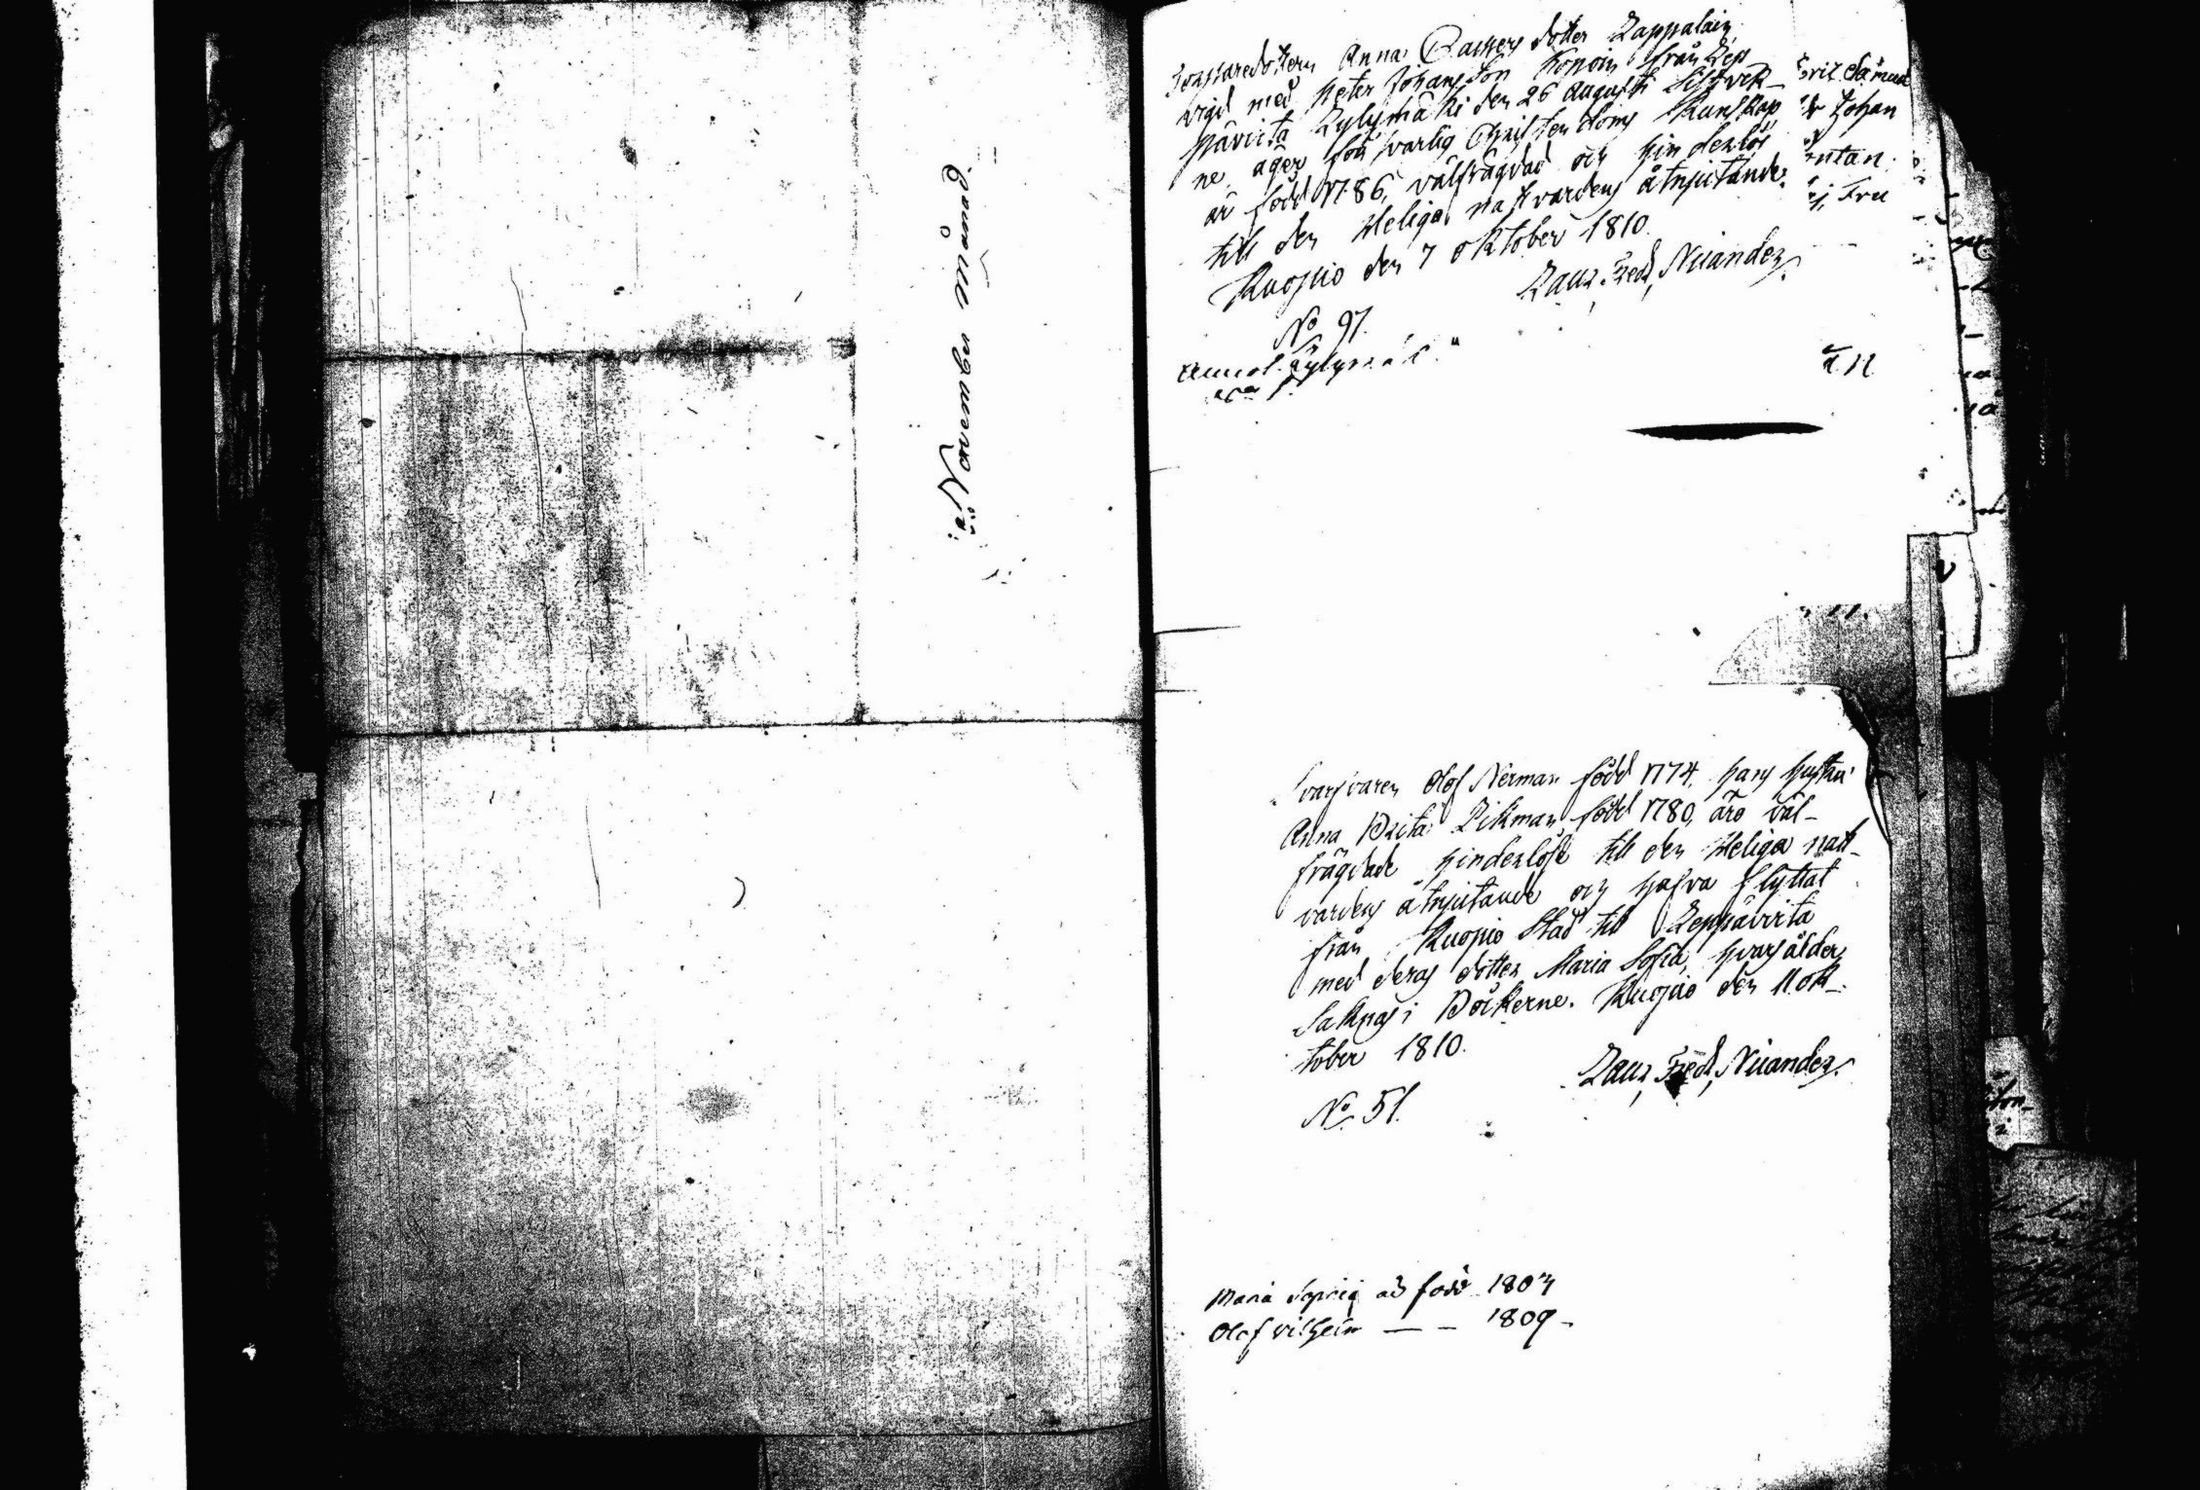 November månad.
Anna Caisers dotter Lappalain,
vigd med Peter Johansson Konoin från Lep
pävirta Lylymäki den 26 Augusti sistvek-
ne, äger försvarlig Christendoms kunskap,
är född 1786, välfrägdad och hinderlös
till den Heliga nattvardens åtnjutande.
Kuopio den 7 October 1810.
Laur. Fred. Nüander.
No 97.
Samuel
Johan
utan
Fru
än
Svarfvaren Olof Nerman född 1774, hans hustru
Anna Brita Likman född 1780, äro väl-
frägdade hinderlöse till den Heliga natt-
vardens åtnjutande och hafva flyttat
från Kuopio Stad till Leppävirta
med deras dotter Maria Sofia, hvars ålder
saknas i Böckerne. Kuopio den 11 Ok-
tober 1810.
Laur. Fred. Nüander.
No 51.
Maria Sophia född 1807
Olof Vilhelm — — 1809 -